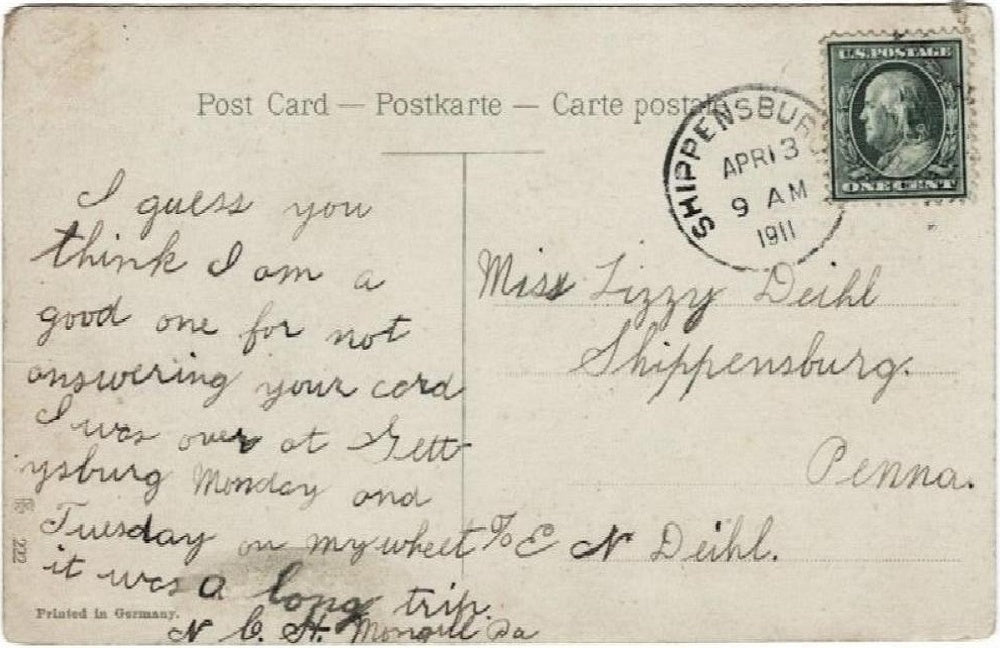 Post Card — Postkarte — Carte postale
U.S. POSTAGE
ONE CENT
SHIPPENSBURG
APR 13
9 AM
1911
I guess you
think I am a
good one for not
answering your card
I was over at Gett
ysburg Monday and
Tuesday on my wheel
it was a long trip.
N C H. Mongul Pa
Miss Lizzy Deihl
Shippensburg.
Penna.
% E N Deihl.
222
Printed in Germany.